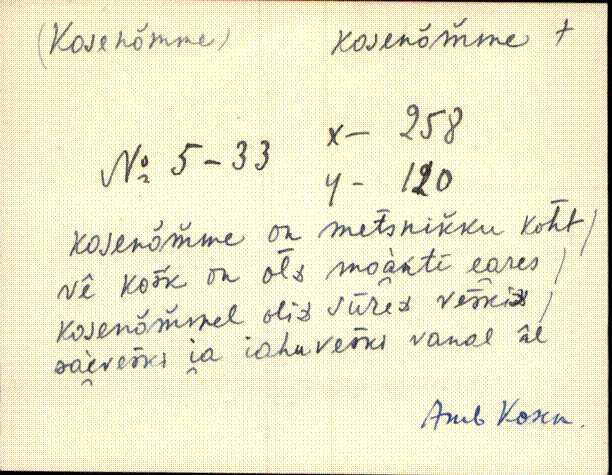 (Kosenõmme) kosenõm̄me +
№ 5-33 x- 258
y- 120
kosenõm̄me on metsnikku koht/
vê kosk on olз moànti eares/
kosenõm̄mel oliз sūreз veskiз/
saèveski ja jahuveski vanal âl
Amb Kosk.